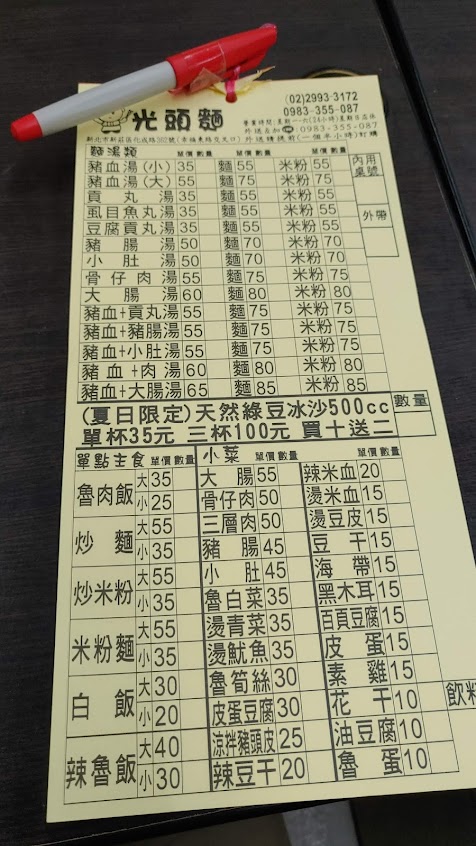 光頭麵
(02)2993-3172
0983-355-087
營業時間:星期一~六(24小時)星期日店休
外送另加 0983-355-087
新北市新莊區化成路382號(幸福東路交叉口) 外送請提前(一個半小時)訂購
麵湯類 單價 數量 單價 數量 單價 數量 內用桌號
豬血湯(小) 35 麵 55 米粉 55
豬血湯(大) 55 麵 75 米粉 75
貢丸湯 35 麵 55 米粉 55
虱目魚丸湯 35 麵 55 米粉 55 外帶
豆腐貢丸湯 35 麵 55 米粉 55
豬腸湯 50 麵 70 米粉 70
小肚湯 50 麵 70 米粉 70
骨仔肉湯 55 麵 75 米粉 75
大腸湯 60 麵 80 米粉 80
豬血+貢丸湯 55 麵 75 米粉 75
豬血+豬腸湯 55 麵 75 米粉 75
豬血+小肚湯 55 麵 75 米粉 75
豬血+肉湯 60 麵 80 米粉 80
豬血+大腸湯 65 麵 85 米粉 85
(夏日限定)天然綠豆冰沙500cc 數量
單杯35元 三杯100元 買十送二
單點主食 單價 數量 小菜 單價 數量 單價 數量
魯肉飯 大 35 大腸 55 辣米血 20
小 25 骨仔肉 50 燙米血 15
炒麵 大 55 三層肉 50 燙豆皮 15
小 35 豬腸 45 豆干 15
炒米粉 大 55 小肚 45 海帶 15
小 35 魯白菜 35 黑木耳 15
米粉麵 大 55 燙青菜 35 百頁豆腐 15
小 35 燙魷魚 35 皮蛋 15
白飯 大 30 魯筍絲 30 素雞 15
小 20 皮蛋豆腐 30 花干 10 飲料
辣魯飯 大 40 涼拌豬頭皮 25 油豆腐 10
小 30 辣豆干 20 魯蛋 10